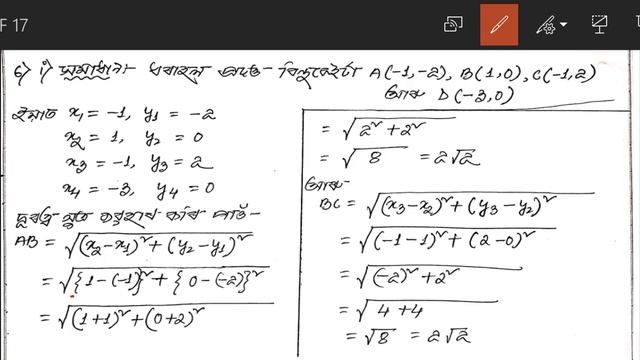 F 17
6) i) সমাধান:- ধৰাহল প্ৰদত্ত বিন্দুকেইটা A(-1,-2), B(1,0), C(-1,2)
আৰু D(-3,0)
ইয়াত x₁ = -1, y₁ = -2
x₂ = 1, y₂ = 0
x₃ = -1, y₃ = 2
x₄ = -3, y₄ = 0
দূৰত্ব সূত্ৰ ব্যৱহাৰ কৰি পাওঁ-
AB = √(x₂-x₁)²+(y₂-y₁)²
= √{1-(-1)}²+{0-(-2)}²
= √(1+1)²+(0+2)²
= √2²+2²
= √8 = 2√2
আৰু-
BC = √(x₃-x₂)²+(y₃-y₂)²
= √(-1-1)²+(2-0)²
= √(-2)²+2²
= √4+4
= √8 = 2√2